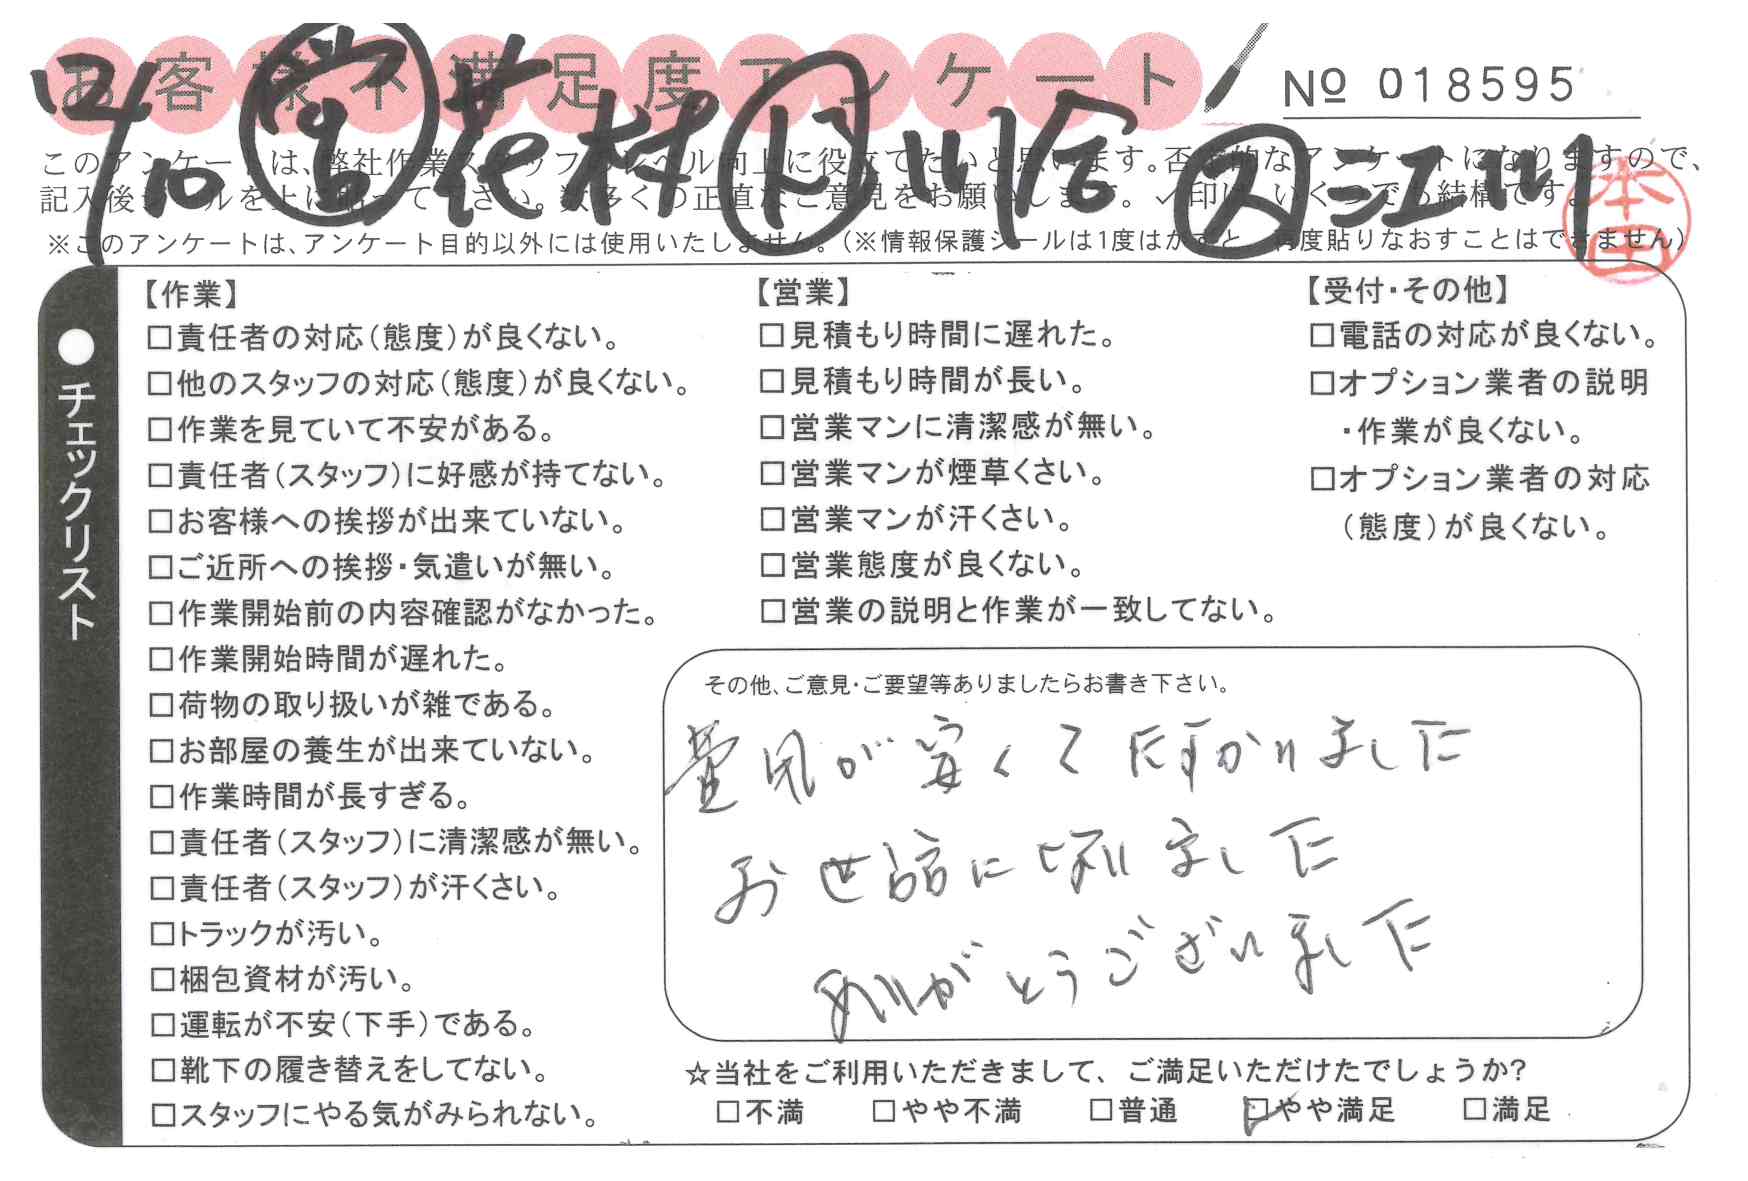 お客様不満足度アンケート
No 018595
12/10 営 花村 ト 川合 ス 江川
本田
このアンケートは、弊社作業スタッフのレベル向上に役立てたいと思います。否定的なアンケートになりますので、
記入後シールを上に貼って下さい。数多くの正直なご意見をお願いします。✓印は、いくつでも結構です。
※このアンケートは、アンケート目的以外には使用いたしません。(※情報保護シールは1度はがすと、再度貼りなおすことはできません)
●チェックリスト
【作業】
□責任者の対応(態度)が良くない。
□他のスタッフの対応(態度)が良くない。
□作業を見ていて不安がある。
□責任者(スタッフ)に好感が持てない。
□お客様への挨拶が出来ていない。
□ご近所への挨拶・気遣いが無い。
□作業開始前の内容確認がなかった。
□作業開始時間が遅れた。
□荷物の取り扱いが雑である。
□お部屋の養生が出来ていない。
□作業時間が長すぎる。
□責任者(スタッフ)に清潔感が無い。
□責任者(スタッフ)が汗くさい。
□トラックが汚い。
□梱包資材が汚い。
□運転が不安(下手)である。
□靴下の履き替えをしてない。
□スタッフにやる気がみられない。
【営業】
□見積もり時間に遅れた。
□見積もり時間が長い。
□営業マンに清潔感が無い。
□営業マンが煙草くさい。
□営業マンが汗くさい。
□営業態度が良くない。
□営業の説明と作業が一致してない。
【受付・その他】
□電話の対応が良くない。
□オプション業者の説明
・作業が良くない。
□オプション業者の対応
(態度)が良くない。
その他、ご意見・ご要望等ありましたらお書き下さい。
が安くてたすかりました
お世話になりました
ありがとうございました
☆当社をご利用いただきまして、ご満足いただけたでしょうか?
□不満 □やや不満 □普通 ☑やや満足 □満足